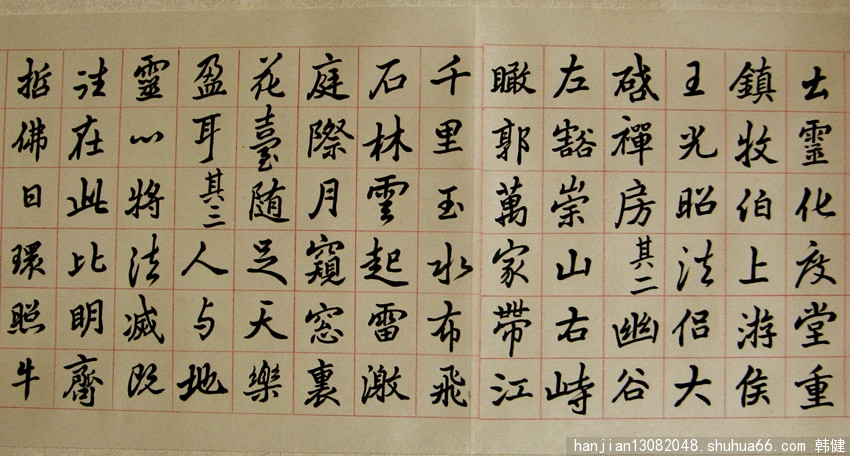 士靈化度堂重
鎮牧伯上游侯
王光昭法侶大
啓禪房其二幽谷
左豁崇山右峙
瞰郭萬家帶江
千里玉水布飛
石林雲起雷激
庭際月窺窓裏
花臺随足天樂
盈耳其三人与地
靈心將法滅既
註在此比明齊
哲佛日環照牛
hanjian13082048.shuhua66.com 韩健